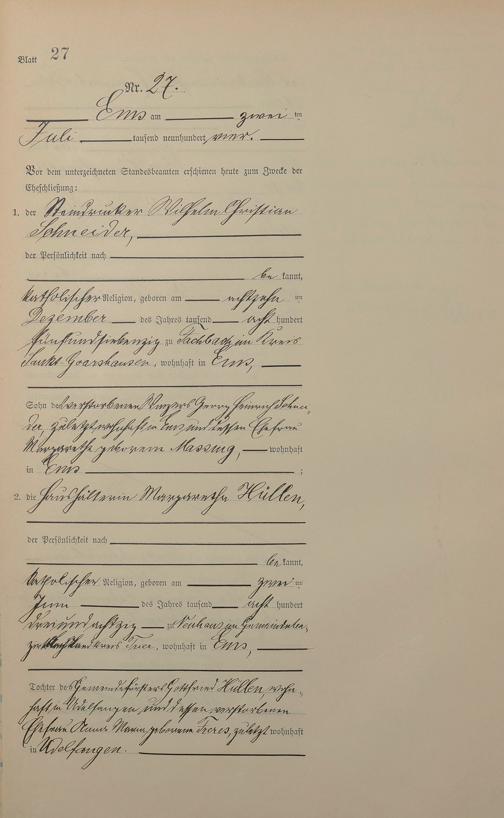 Blatt 27
Nr. 27.
Ems am zwei ten
Juli tausend neunhundert vier.
Vor dem unterzeichneten Standesbeamten erschienen heute zum Zwecke der
Eheschließung:
1. der Steindrucker Wilhelm Christian
Schneider,
der Persönlichkeit nach
be kannt,
katholischer Religion, geboren am achtzehn ten
Dezember des Jahres tausend acht hundert
fünfundsiebenzig zu Fachbach im Kreis
Sankt Goarshausen, wohnhaft in Ems,
Sohn des verstorbenen Georg Heinrich Schnei-
der, zuletzt wohnhaft in Ems und dessen Ehefrau
Margarethe geborene Massing, wohnhaft
in Ems ;
2. die Haushälterin Margaretha Hüllen,
der Persönlichkeit nach
be kannt,
katholischer Religion, geboren am zwei ten
Juni des Jahres tausend acht hundert
dreiundachtzig zu Neuhaus
Landkreis Trier, wohnhaft in Ems,
Tochter des Gemeindeförsters Gottfried Hüllen, wohn-
haft in Udelfangen, und dessen verstorbenen
Ehefrau Anna Maria geborene zuletzt wohnhaft
in Udelfangen.